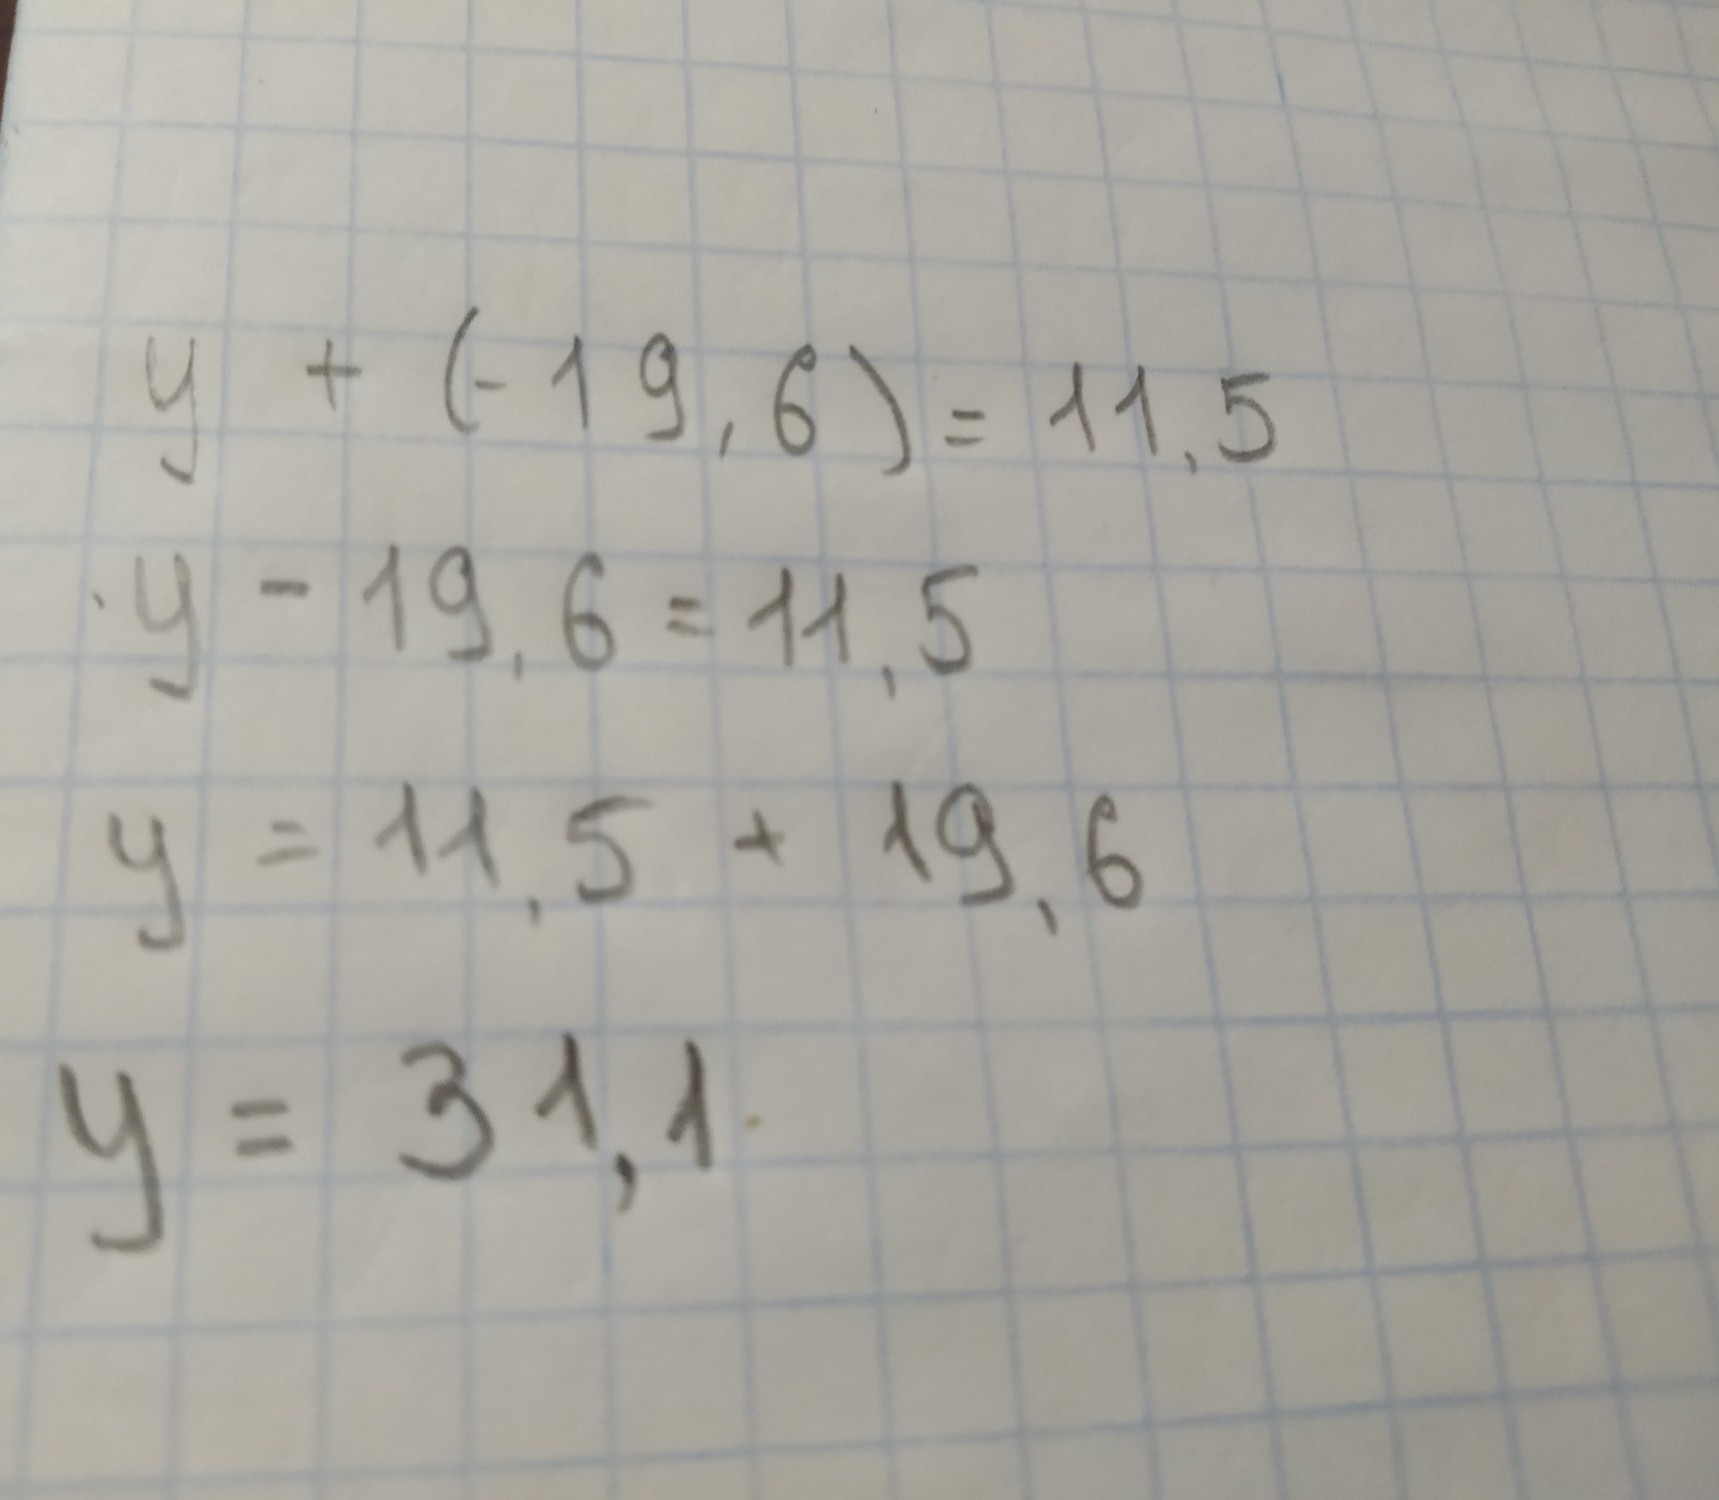 y + (-19,6) = 11,5
y - 19,6 = 11,5
y = 11,5 + 19,6
y = 31,1